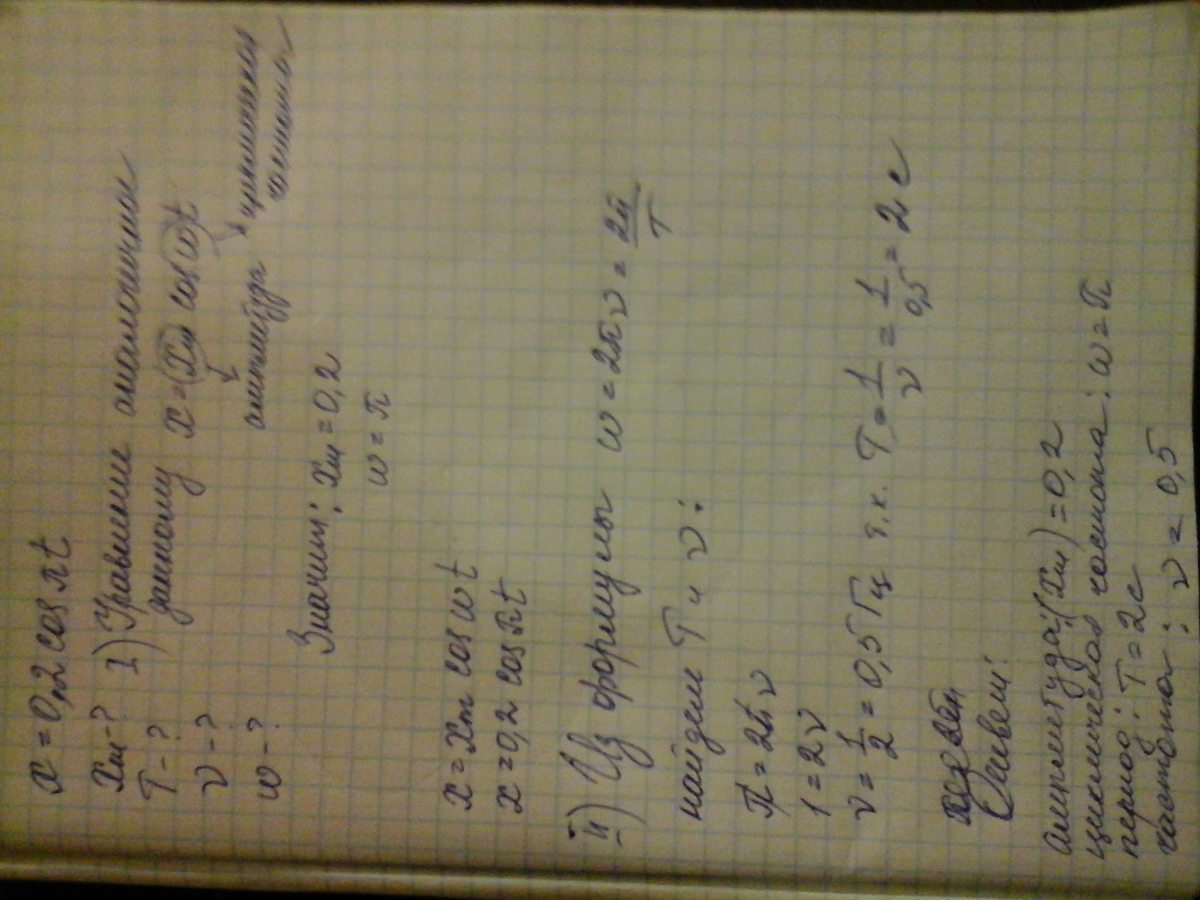 x = 0,2 cos πt
xм - ? 1) Уравнение аналогичное
T - ? данному x = xм cos ωt
ν - ? амплитуда циклическая
ω - ? частота
Значит: xм = 0,2
ω = π
x = xm cos ωt
x = 0,2 cos πt
II) Из формулы ω = 2πν = 2π/T
найдем T и ν:
π = 2πν
1 = 2ν
ν = 1/2 = 0,5 Гц т.к. T = 1/ν = 1/0,5 = 2 с
Ответ:
Амплитуда: (xм) = 0,2
циклическая частота: ω = π
период: T = 2с
частота: ν = 0,5